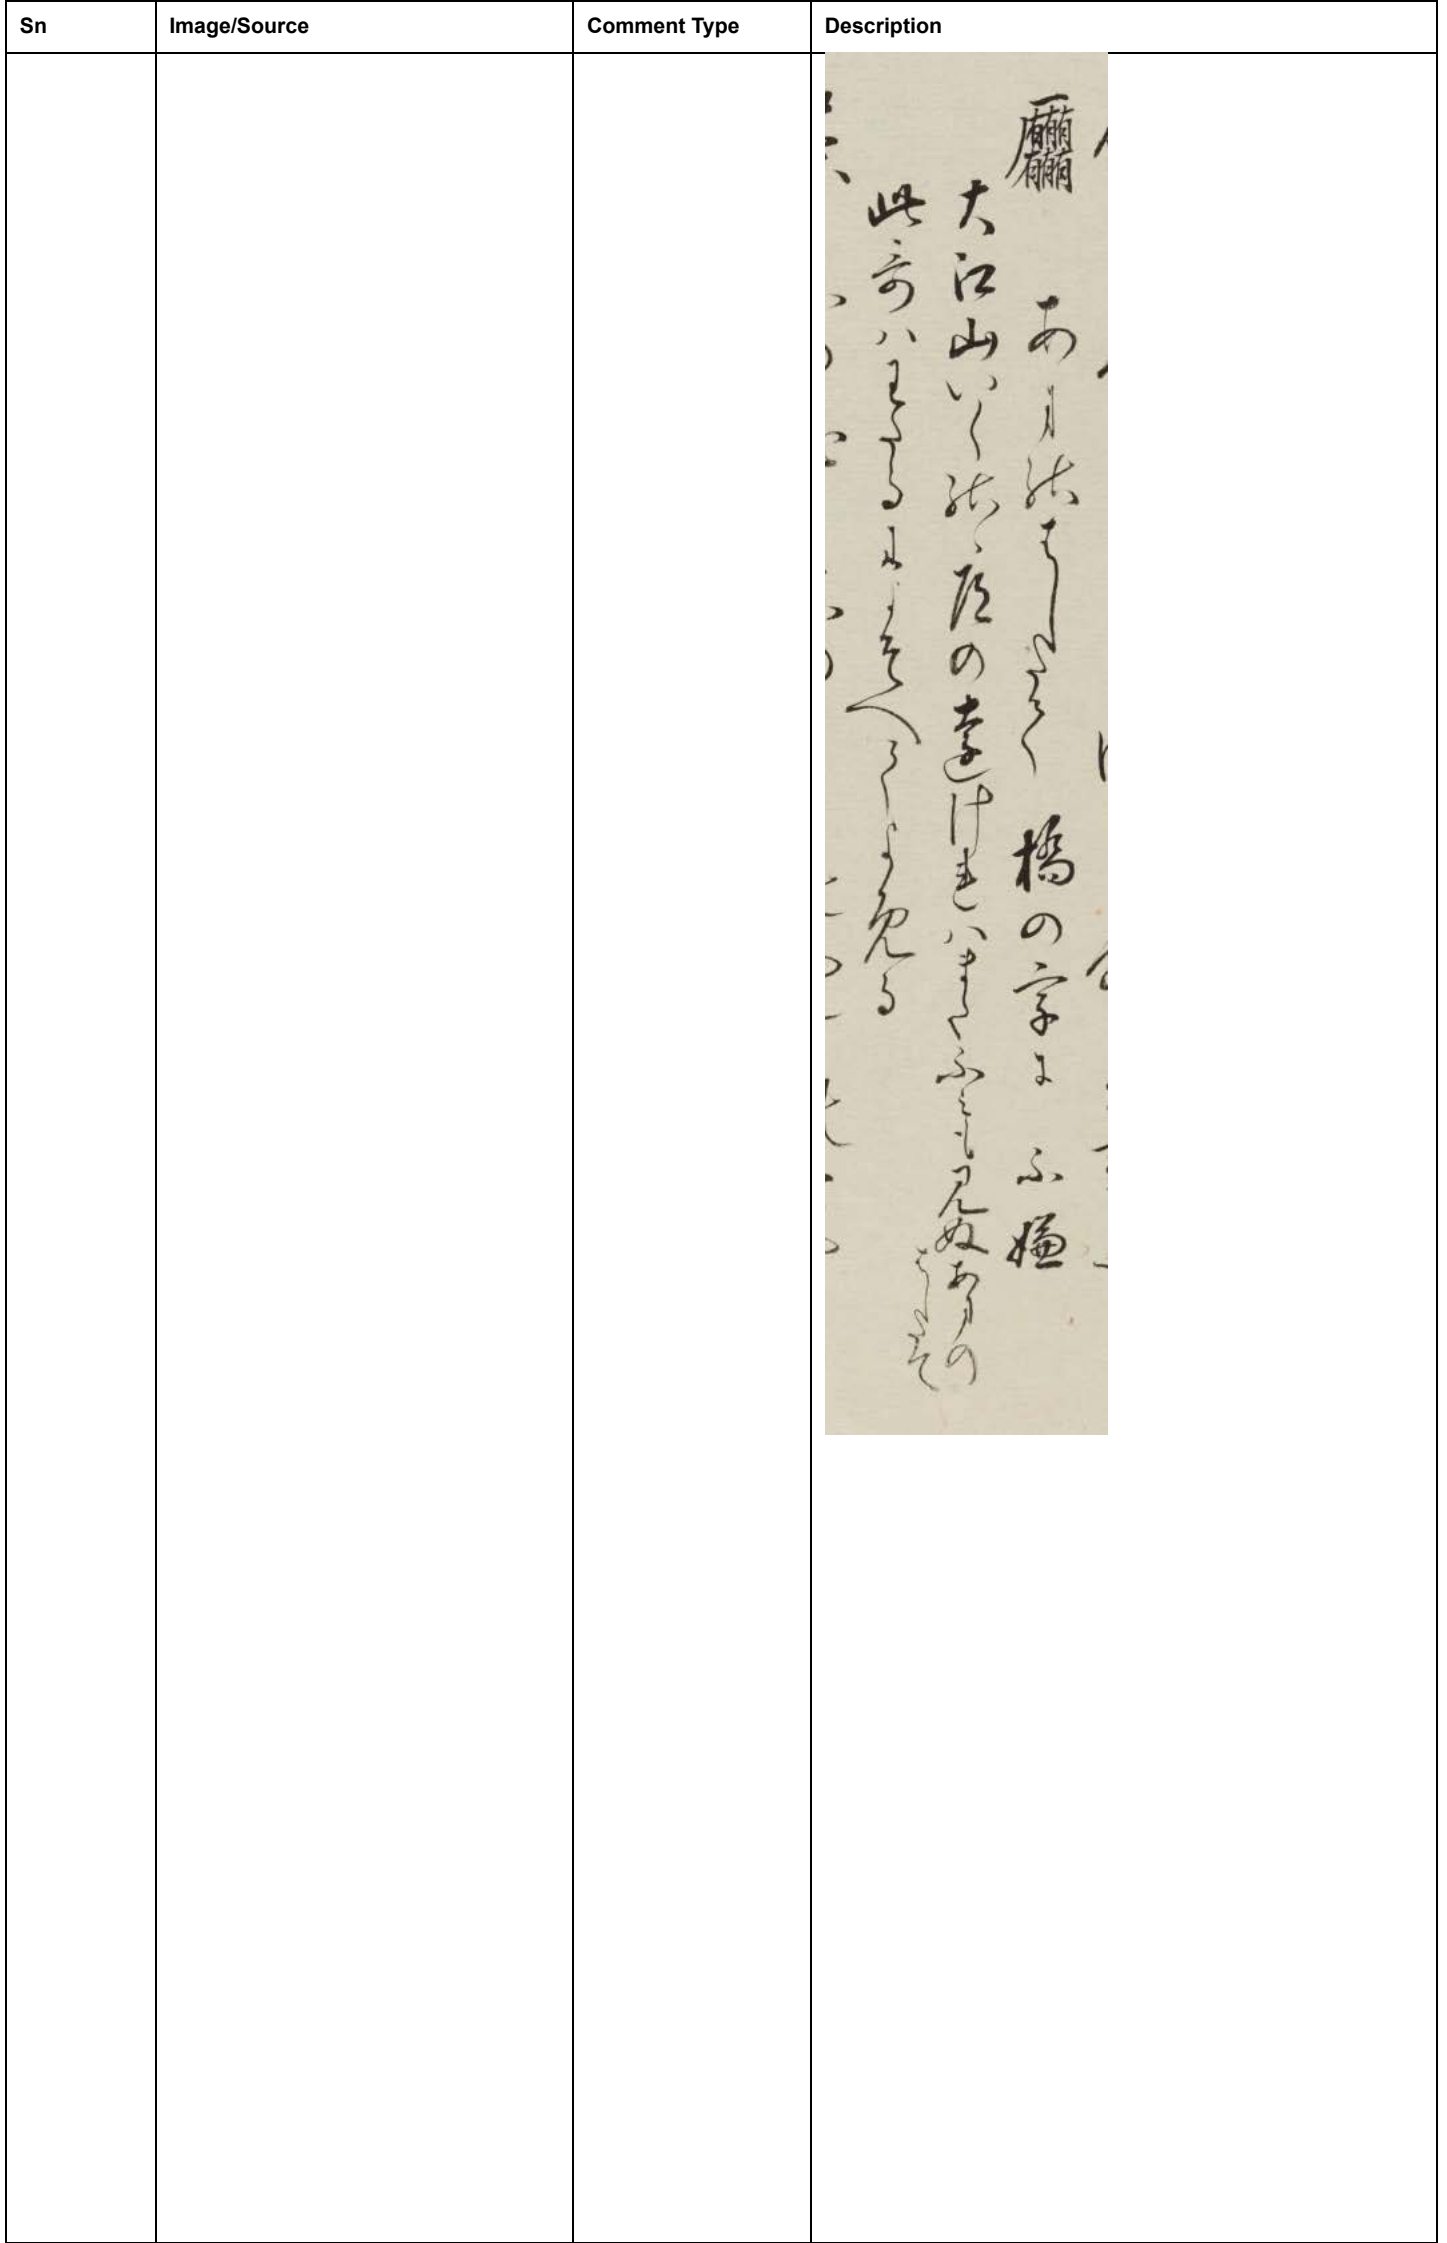 Sn
Image/Source
Comment Type
Description
あまのはしたて 橋の字に ふ嫌
大江山いくのゝ道の遠けれはまたふみも見ぬあまの
はしたて
此哥ハわたるによそへてよめる